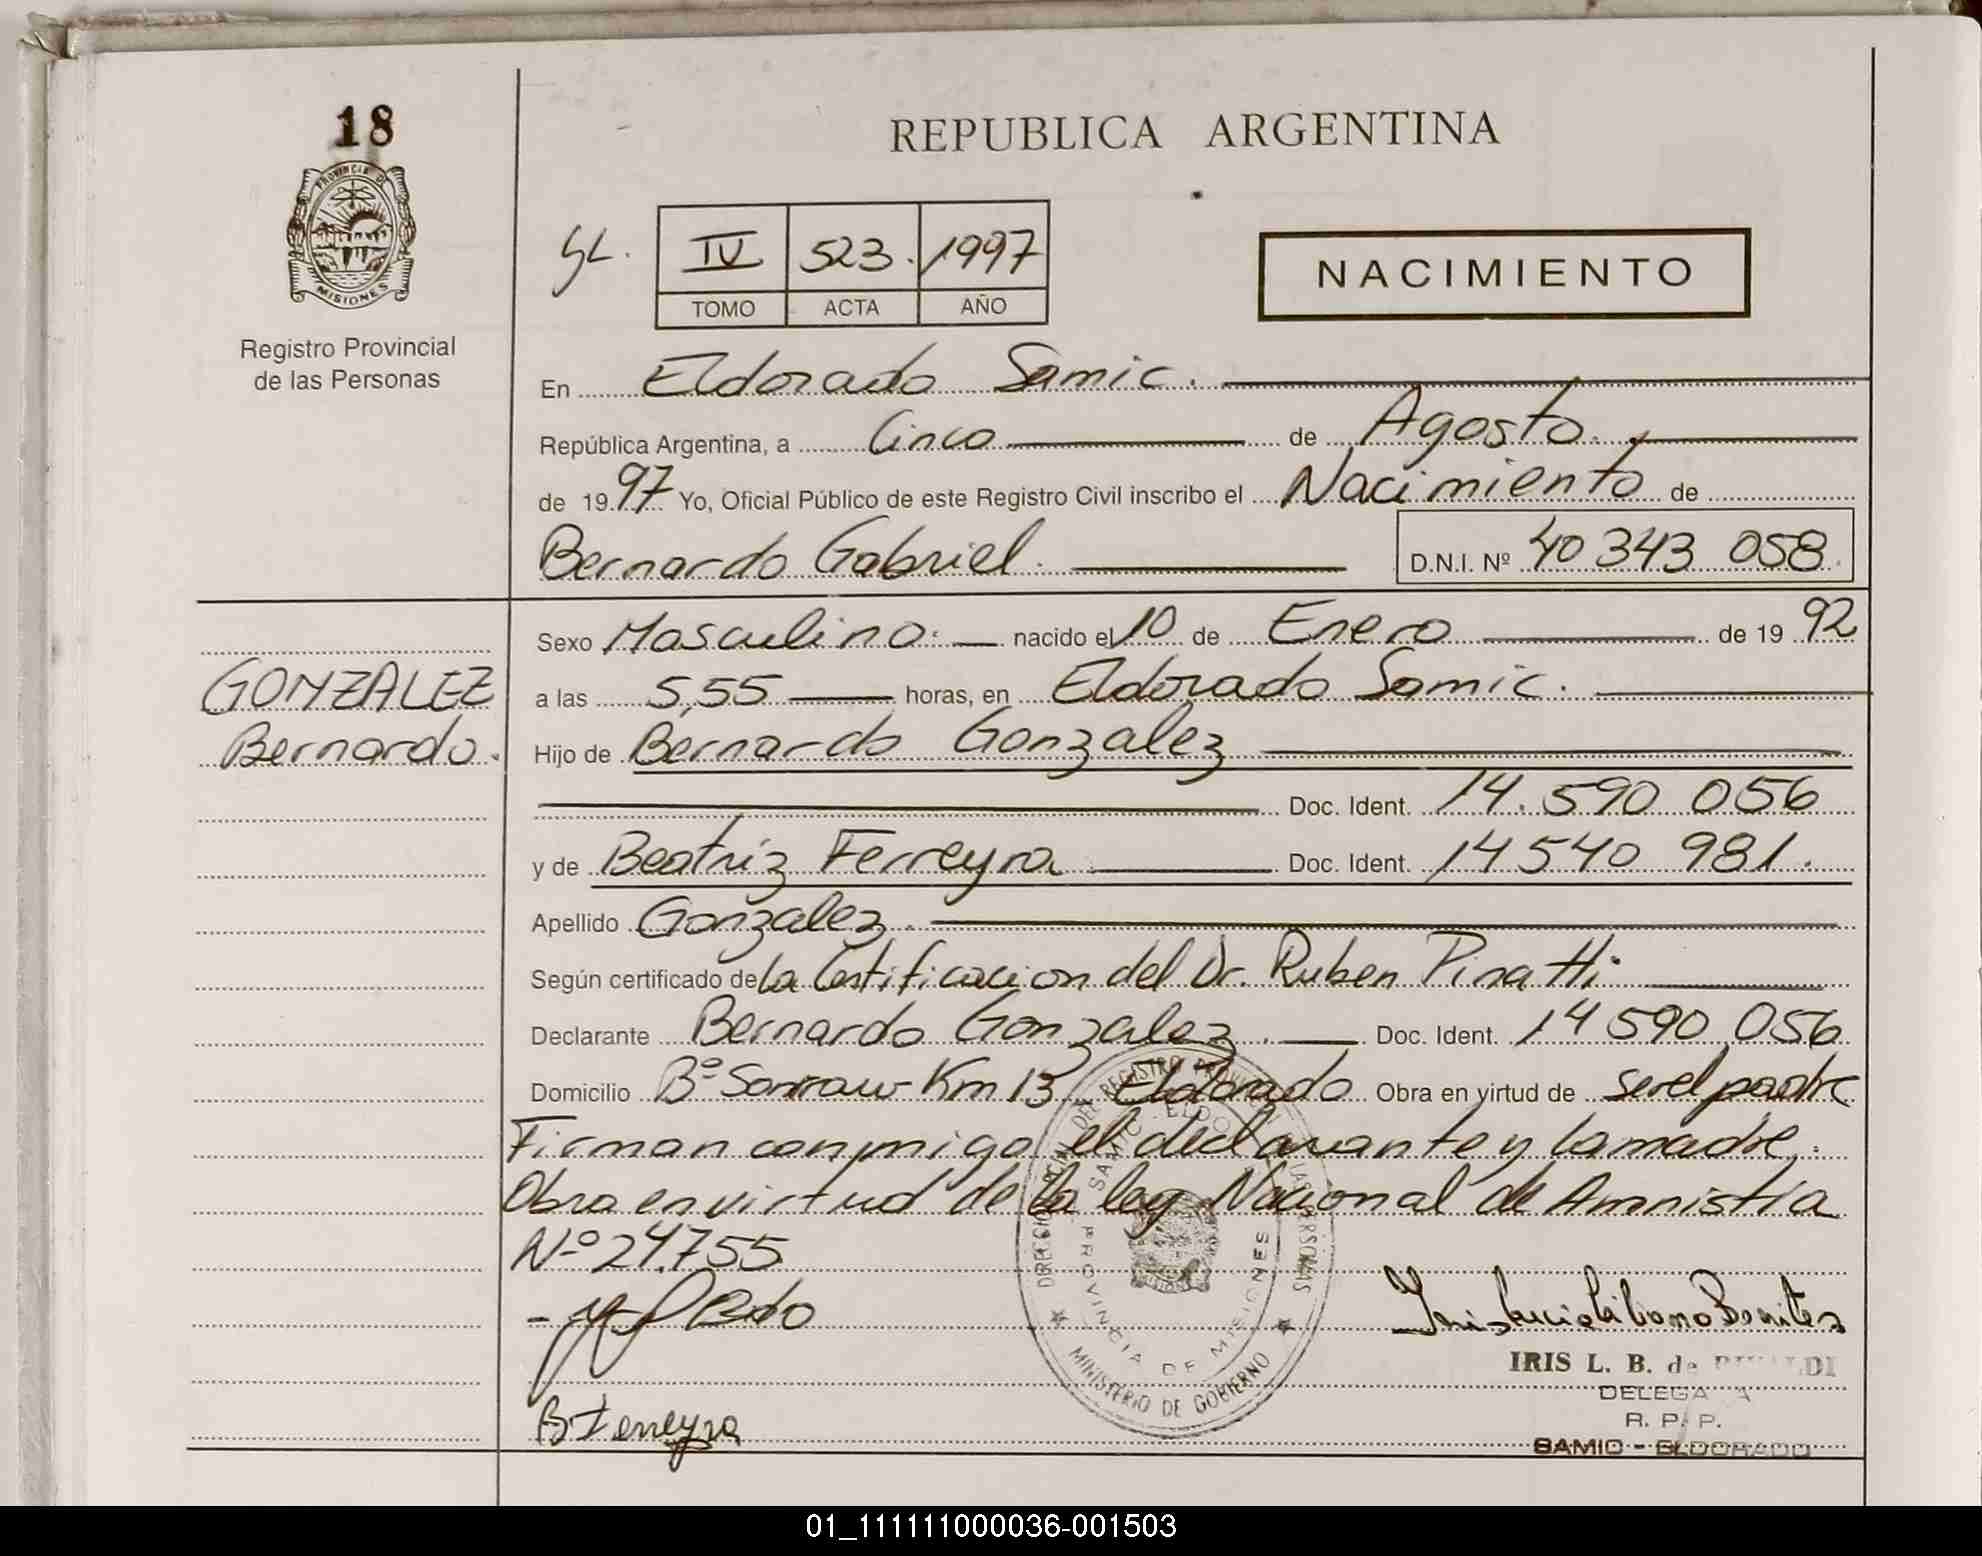 18
PROVINCIA DE
MISIONES
Registro Provincial
de las Personas
REPUBLICA ARGENTINA
IV 523. 1997
TOMO ACTA AÑO
NACIMIENTO
En Eldorado Samic.
República Argentina, a Cinco de Agosto.
de 1997 Yo, Oficial Público de este Registro Civil inscribo el Nacimiento de
Bernardo Gabriel. D.N.I. Nº 40 343 058.
GONZALEZ
Bernardo.
Sexo Masculino. nacido el 10 de Enero de 1992
a las 5,55 horas, en Eldorado Samic.
Hijo de Bernardo Gonzalez
Doc. Ident. 14.590 056
y de Beatriz Ferreyra Doc. Ident. 14 540 981.
Apellido Gonzalez.
Según certificado de La Certificacion del Dr. Ruben Pinatti
Declarante Bernardo Gonzalez. Doc. Ident. 14 590 056
Domicilio Bº Km 13 Eldorado Obra en virtud de ser el padre
Firman conmigo el declarante y la madre.
Obra en virtud de la ley Nacional de Amnistia
Nº 24.755
B Ferreyra
DIRECCION DEL REGISTRO PROVINCIAL DE LAS PERSONAS
MINISTERIO DE GOBIERNO
SAMIC - ELDORADO
PROVINCIA DE MISIONES
IRIS L. B. de
DELEGADA
R. P. P.
SAMIC - ELDORADO
01_111111000036-001503